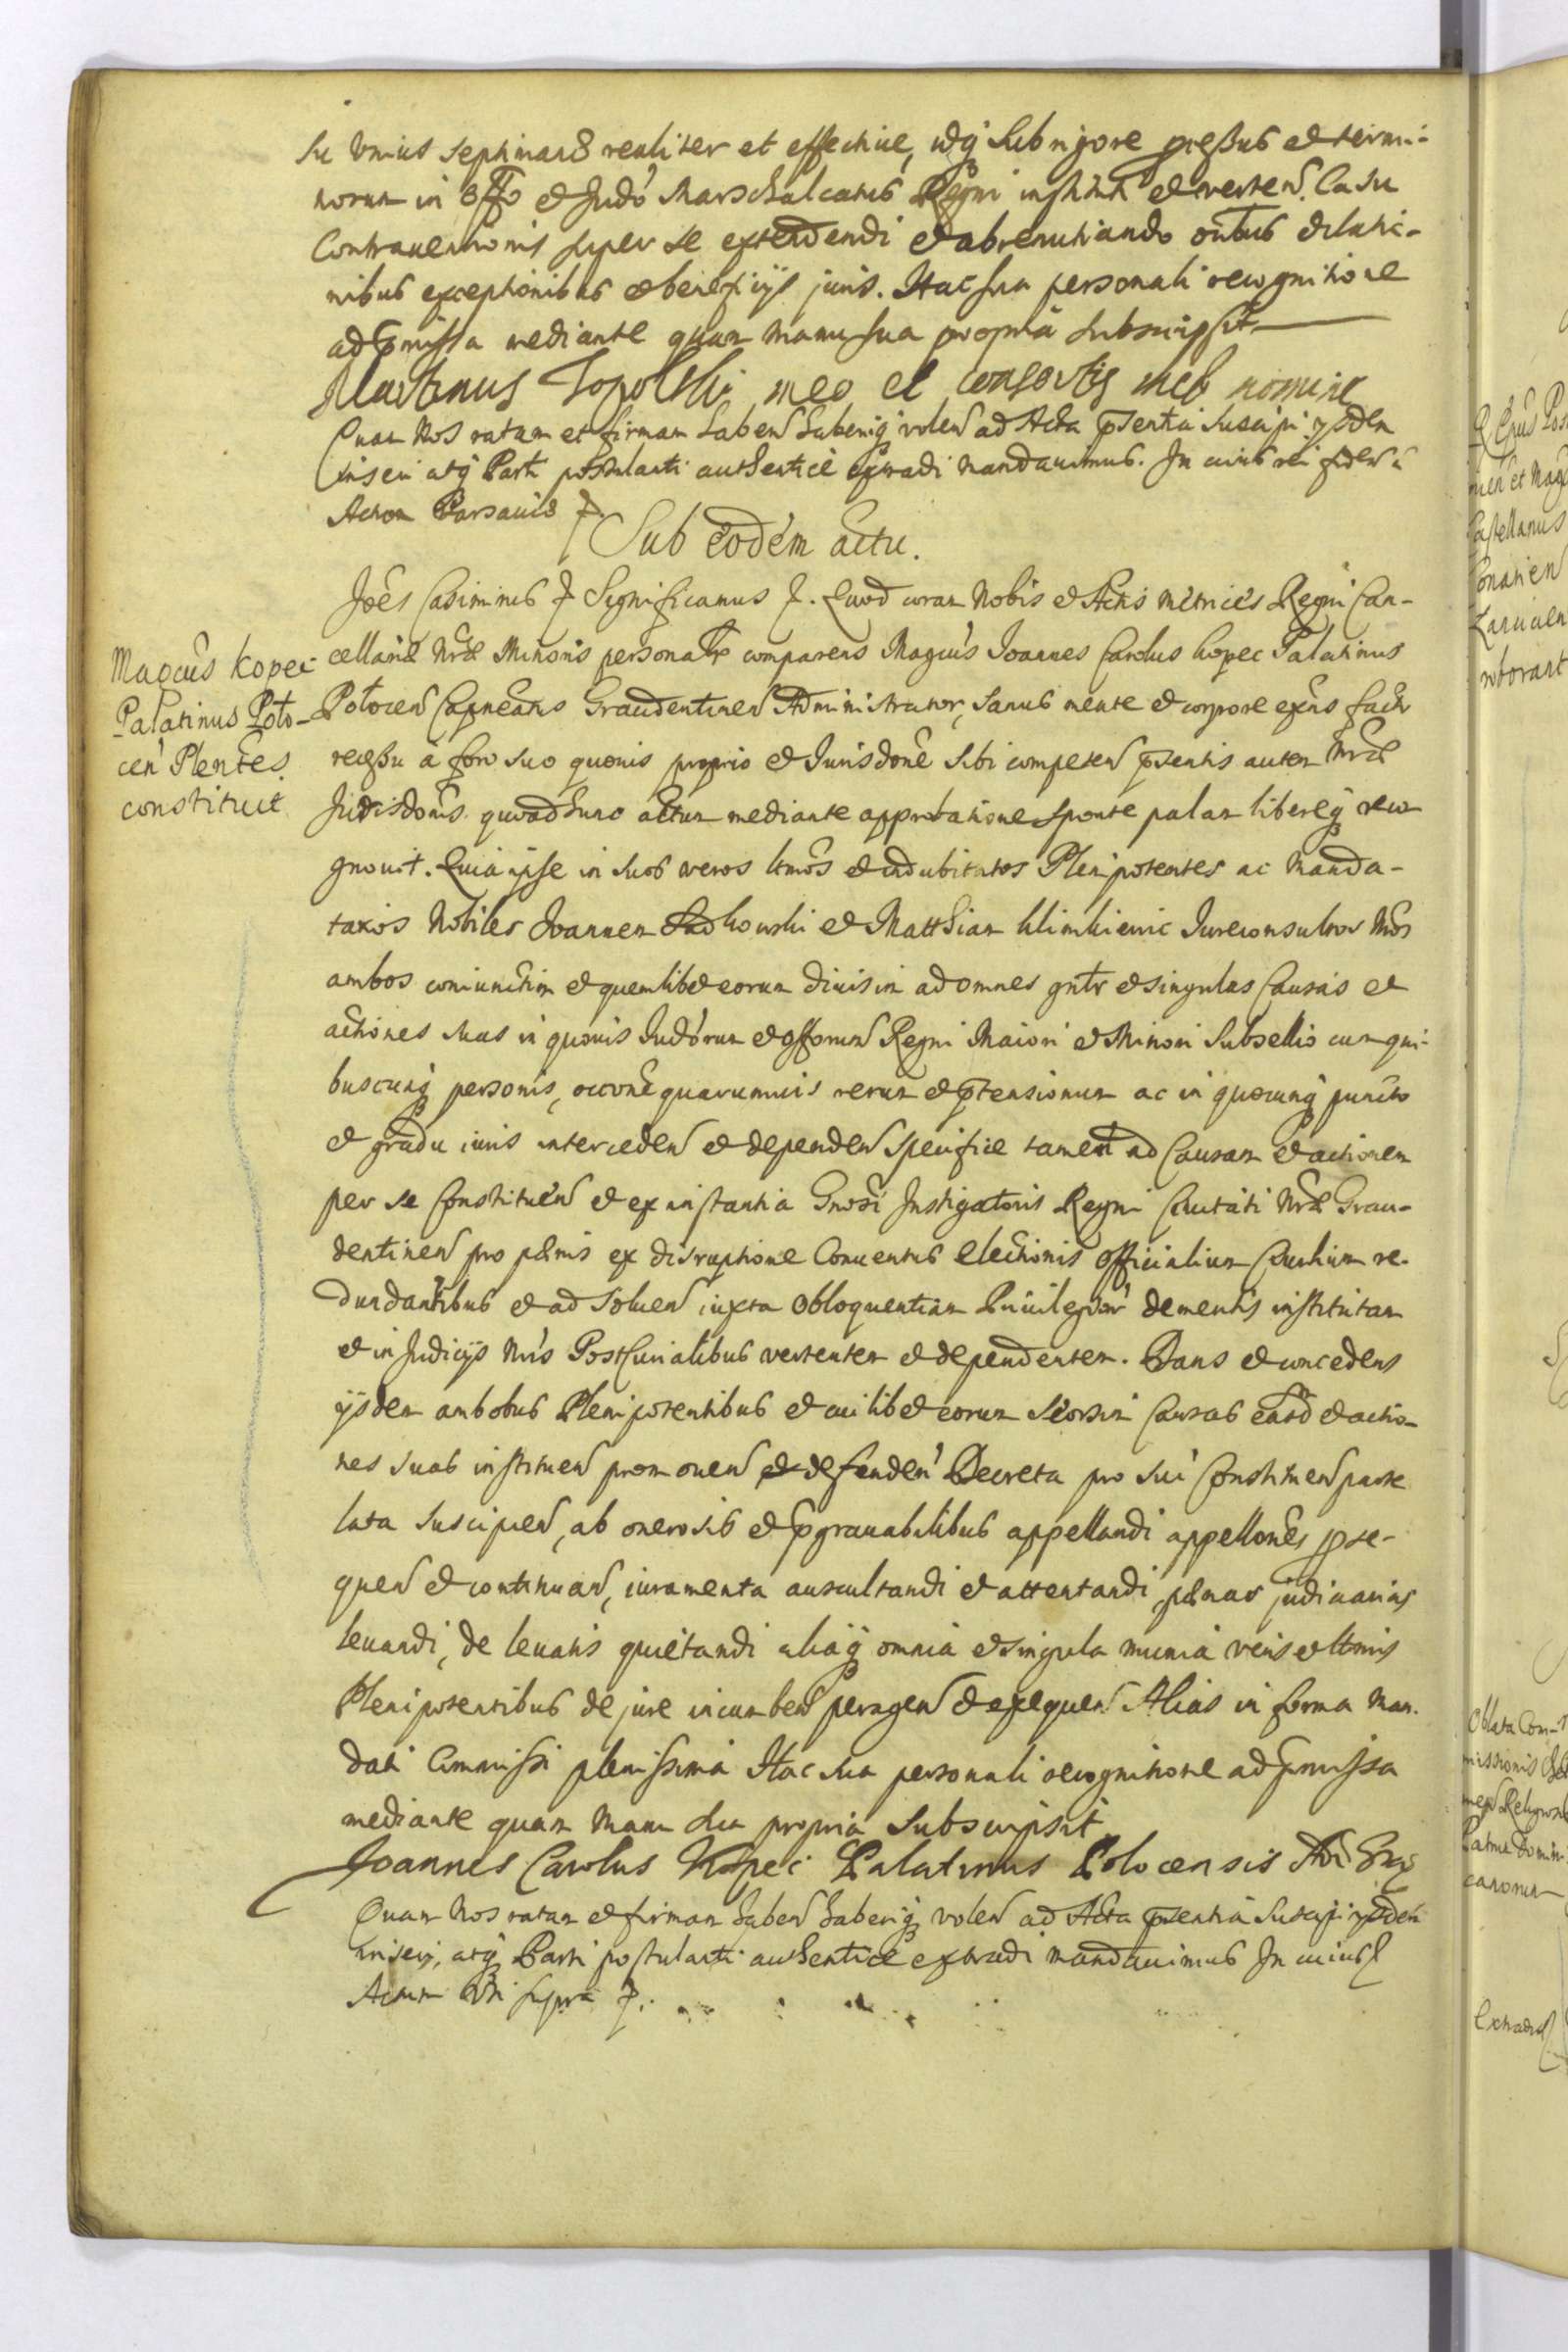 su unius septimanæ realiter et effective, idq sub rigore processus et termi-
norum in offo et Judo Marschalcatus Regni instituen et verten. Casu
Contraventionis super se extendendi et abrenuntiando omnibus dilatio-
nibus exceptionibus et beneficijs juris. Hac sua personali recognitione
ad præmissa mediante quam manu sua propria subscripsit
Martinus Topolski meo et consortis meæ nomine
Quam Nos ratam et firmam haben haberiq volen ad Acta præsentia suscipi ysdem
inseri atq Parti postulanti authentice extradi mandavimus. In cuius rei fidem
Actum Varsaviæ
Sub eodem actu.
Joes Casimirus Significamus. Quod coram Nobis et Actis Metrices Regni Can-
cellariæ Nræ Minoris personalr comparens Magcus Joannes Carolus Kopec Palatinus
Magcus Kopec
Palatinus Polo-
cen Plentes
constituit
Polocen Capneatus Graudentinen Administrator, sanus mente et corpore exens facto
recessu a foro suo quovis proprio et Jurisdone sibi competen præsentis autem Nræ
Jurisdonis quoad hunc actum mediante approbatione sponte palam libereq reco
gnovit. Quia ipse in suos veros ltmos et indubitatos Plenipotentes ac Manda-
tarios Nobiles Joannem Sadkowski et Matthiam Klimkiewic Jureconsultos Nros
ambos coniunctim et quemlibet eorum divisim ad omnes gntr et singulas Causas et
actiones suas in quovis Judorum et offorum Regni Maiori et Minori Subsellio cum qui-
buscunq personis, occone quarumvis rerum et prætensionum ac in quocunq puncto
et gradu iuris interceden et dependen specifice tamen ad Causam et actionem
per se Constituen et ex instantia Gnosi Instigatoris Regni Civitati Nræ Grau-
dentinen pro pænis ex disruptione Conventus electionis officialium Civilium re-
dundantibus et ad solven iuxta obloquentiam Privilegior dementis institutam
et in Judicijs Nris PostCurialibus vertentem et dependentem. Dans et concedens
ijsdem ambobus Plenipotentibus et cuilibet eorum seorsim Causas easd et actio-
nes suas instituen promoven et defenden Decreta pro sui Constituen parte
lata suscipien, ab onerosis et prægravabilibus appellandi appellones prose-
quen et continuan, iuramenta auscultandi et attentandi, pænas judiciarias
levandi, de levatis quietandi aliaq omnia et singula munia veris et ltmis
Plenipotentibus de jure incumben peragen et exequen Alias in forma Man-
dati Commissi plenissima Hac sua personali recognitione ad præmissa
mediante quam manu sua propria subscripsit
Joannes Carolus Kopec Palatinus Polocensis
Quam Nos ratam et firmam haben haberiq volen ad Acta præsentia suscipi ysdem
inseri, atq Parti postulanti authentice extradi mandavimus In cuius
Actum Uti supra